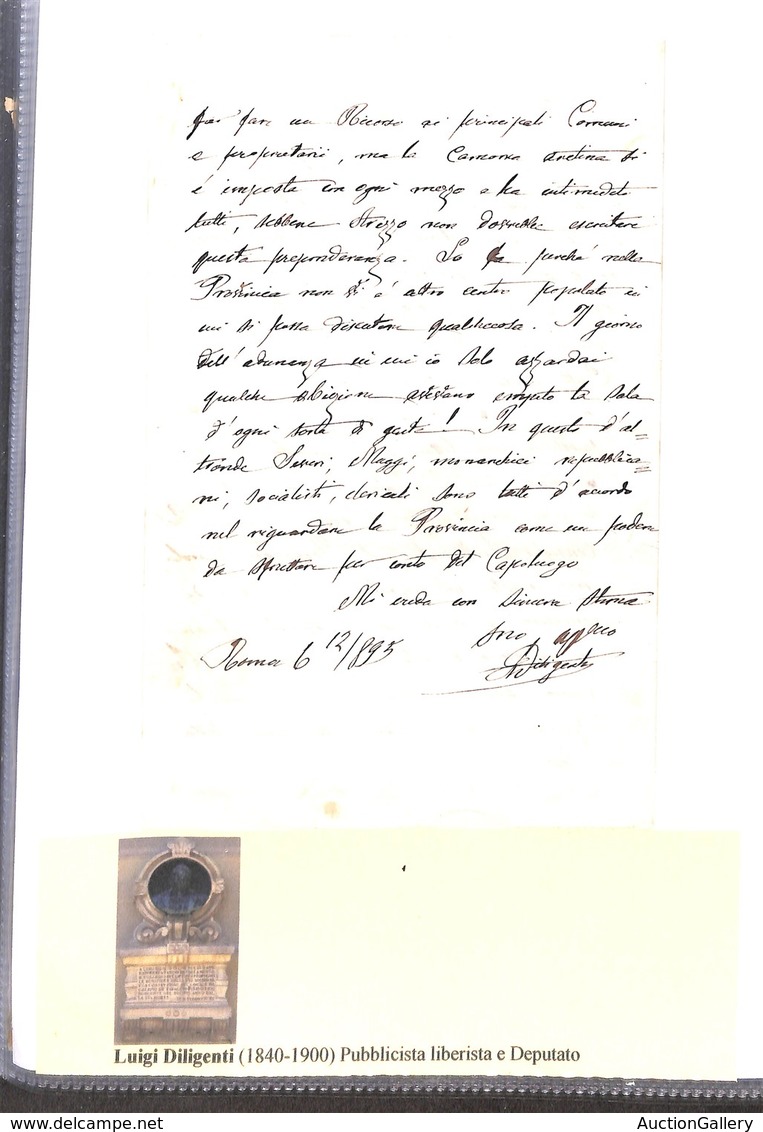 far fare un Ricorso ai principali Comuni
e proprietari, ma la Camorra aretina si
è imposta con ogni mezzo e ha intimidito
tutti, sebbene Arezzo non dovrebbe esercitare
questa preponderanza. perché nella
Provincia non vi è altro centro popolato in
cui si possa discutere qualchecosa. Il giorno
dell'adunanza in cui io solo azzardai
qualche obiezione avevano empito la sala
d'ogni sorta di gente! In questo d'al=
tronde Severi, Maggi, monarchici repubblica=
ni, socialisti, clericali sono tutti d'accordo
nel riguardare la Provincia come un podere
da sfruttare per conto del Capoluogo
Mi creda con sincera stima
Suo
Roma 6 12/895
Diligenti
Luigi Diligenti (1840-1900) Pubblicista liberista e Deputato
www.delcampe.net
AuctionGallery